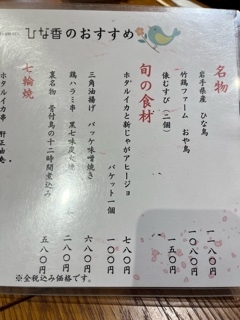 ひな香のおすすめ
名物
岩手県産 ひな鳥 一、一八〇円
竹鶏ファーム おや鳥 一、〇八〇円
俵むすび(二個) 一五〇円
旬の食材
ホタルイカと新じゃがアヒージョ 七八〇円
バケット一個 一〇〇円
三角油揚げ バッケ味噌焼き 六八〇円
鶏ハラミ串 黒七味炭火焼 二八〇円
裏名物 骨付鳥の十二時間煮込み 五八〇円
七輪焼
ホタルイカ串
※全税込み価格です。